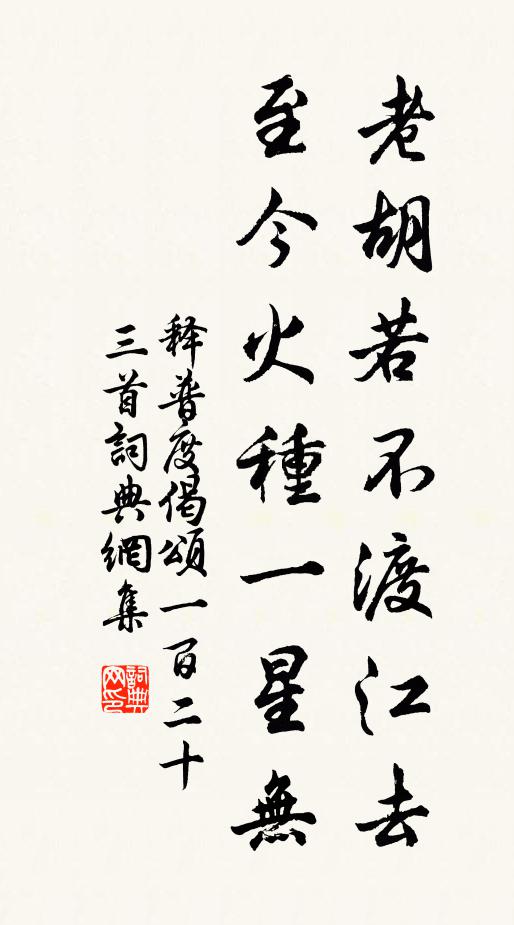 老胡若不渡江去
至今火種一星無
释普度偈頌一百二十
三首詞典網集
詞典
网印